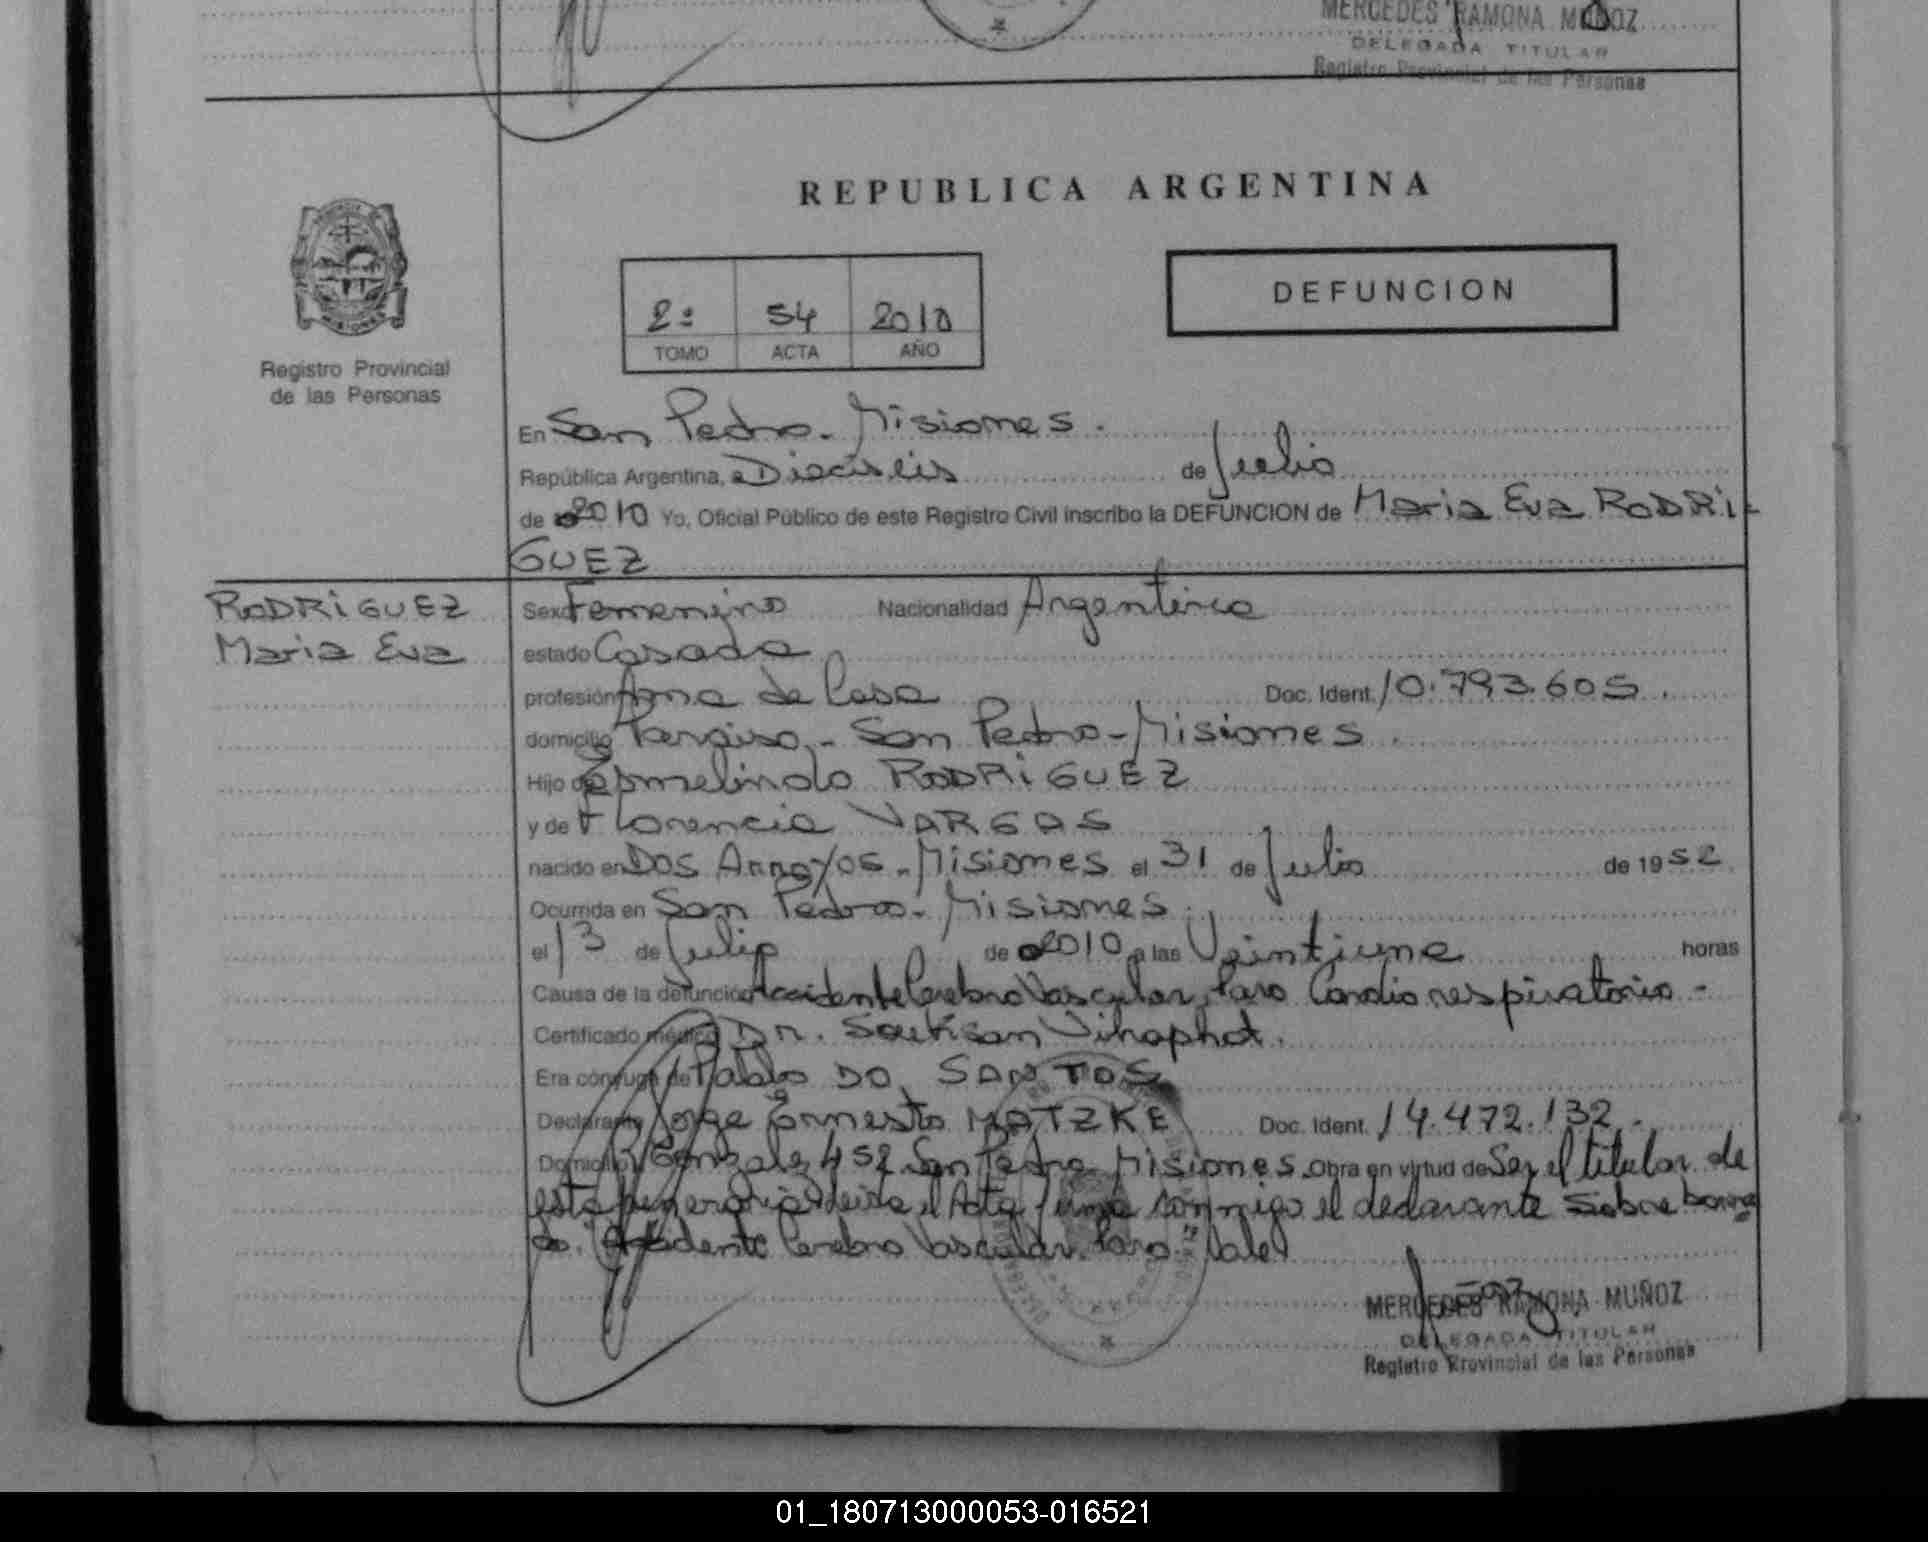 MERCEDES RAMONA MUÑOZ
DELEGADA TITULAR
Registro Provincial de las Personas
REPUBLICA ARGENTINA
2º 54 2010
TOMO ACTA AÑO
DEFUNCION
PROVINCIA DE MISIONES
Registro Provincial
de las Personas
En San Pedro - Misiones.
República Argentina, a Dieciséis de Julio
de 2010 Yo, Oficial Público de este Registro Civil inscribo la DEFUNCION de Maria Eva RODRI-
GUEZ
RODRIGUEZ
Maria Eva
Sexo Femenino Nacionalidad Argentina
estado Casada
profesión Ama de Casa Doc. Ident. 10.793.605.
domicilio Paraiso - San Pedro - Misiones.
Hijo de Esmelindo RODRIGUEZ
y de Florencia VARGAS
nacido en Dos Arroyos - Misiones el 31 de Julio de 1952
Ocurrida en San Pedro - Misiones.
el 13 de Julio de 2010 a las Veintiuna horas
Causa de la defunción Accidente Cerebro Vascular, Paro Cardiorespiratorio -
Certificado médico Dr. Vihaphat.
Era cónyuge de Pablo DO SANTOS
Declarante Jorge Ernesto MATZKE Doc. Ident. 14.472.132.
Domicilio Gonzalez 452 San Pedro Misiones Obra en virtud de Ser el titular de
esta el Acta firma conmigo el declarante Sobre borra
do: Accidente Cerebro Vascular. Paro. Vale
MERCEDES RAMONA MUÑOZ
DELEGADA TITULAR
Registro Provincial de las Personas
01_180713000053-016521